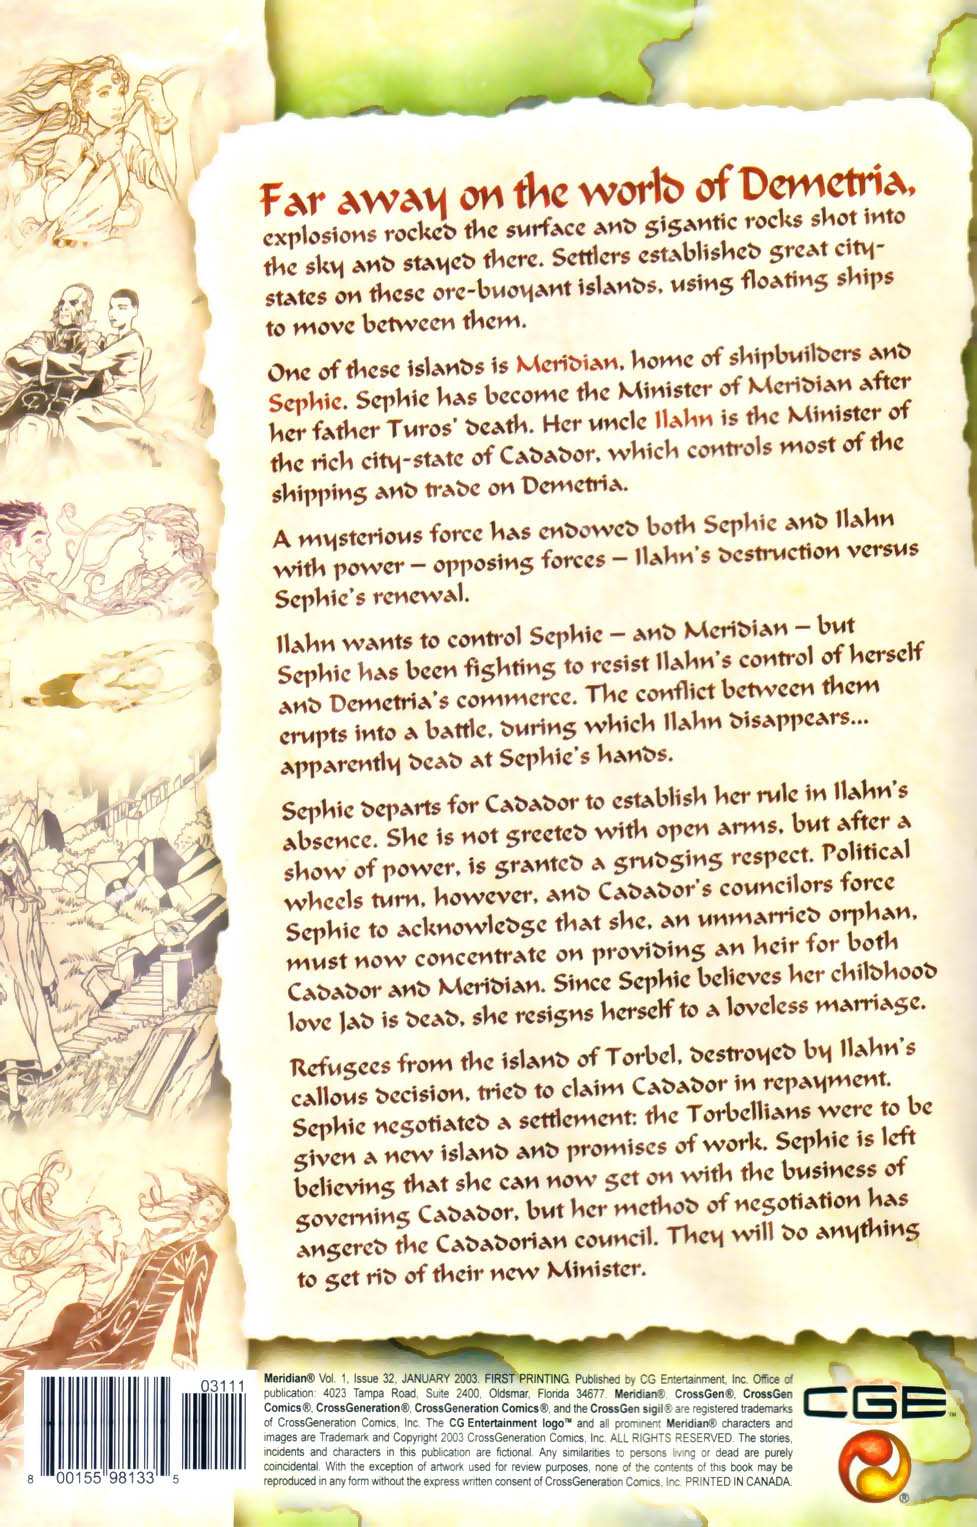 Far away on the world of Demetria,
explosions rocked the surface and gigantic rocks shot into
the sky and stayed there. Settlers established great city-
states on these ore-buoyant islands, using floating ships
to move between them.
One of these islands is Meridian, home of shipbuilders and
Sephie. Sephie has become the Minister of Meridian after
her father Turos' death. Her uncle Ilahn is the Minister of
the rich city-state of Cadador, which controls most of the
shipping and trade on Demetria.
A mysterious force has endowed both Sephie and Ilahn
with power – opposing forces – Ilahn's destruction versus
Sephie's renewal.
Ilahn wants to control Sephie – and Meridian – but
Sephie has been fighting to resist Ilahn's control of herself
and Demetria's commerce. The conflict between them
erupts into a battle, during which Ilahn disappears...
apparently dead at Sephie's hands.
Sephie departs for Cadador to establish her rule in Ilahn's
absence. She is not greeted with open arms, but after a
show of power, is granted a grudging respect. Political
wheels turn, however, and Cadador's councilors force
Sephie to acknowledge that she, an unmarried orphan,
must now concentrate on providing an heir for both
Cadador and Meridian. Since Sephie believes her childhood
love Jad is dead, she resigns herself to a loveless marriage.
Refugees from the island of Torbel, destroyed by Ilahn's
callous decision, tried to claim Cadador in repayment.
Sephie negotiated a settlement: the Torbellians were to be
given a new island and promises of work. Sephie is left
believing that she can now get on with the business of
governing Cadador, but her method of negotiation has
angered the Cadadorian council. They will do anything
to get rid of their new Minister.
03111
8 00155 98133 5
Meridian® Vol. 1, Issue 32, JANUARY 2003. FIRST PRINTING. Published by CG Entertainment, Inc. Office of
publication: 4023 Tampa Road, Suite 2400, Oldsmar, Florida 34677. Meridian®, CrossGen®, CrossGen
Comics®, CrossGeneration®, CrossGeneration Comics®, and the CrossGen sigil® are registered trademarks
of CrossGeneration Comics, Inc. The CG Entertainment logo™ and all prominent Meridian® characters and
images are Trademark and Copyright 2003 CrossGeneration Comics, Inc. ALL RIGHTS RESERVED. The stories,
incidents and characters in this publication are fictional. Any similarities to persons living or dead are purely
coincidental. With the exception of artwork used for review purposes, none of the contents of this book may be
reproduced in any form without the express written consent of CrossGeneration Comics, Inc. PRINTED IN CANADA.
CGE™
®